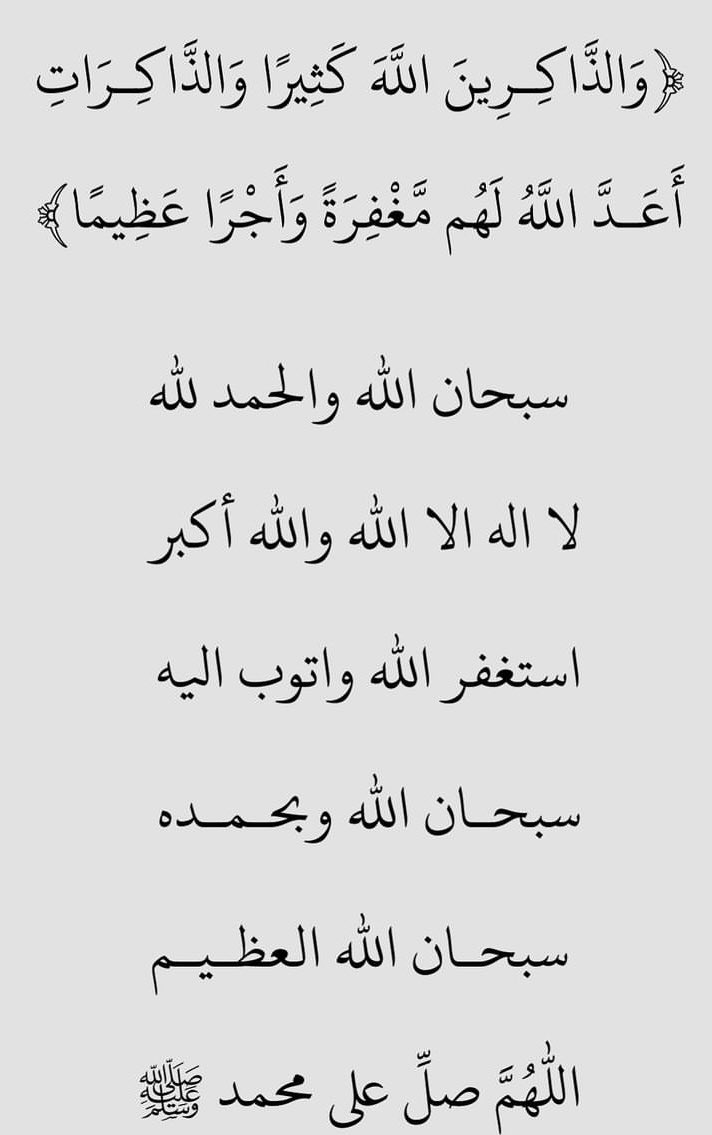 ﴿وَالذَّاكِــرِينَ اللَّهَ كَثِيرًا وَالذَّاكِــرَاتِ
أَعَــدَّ اللَّهُ لَهُم مَّغْفِرَةً وَأَجْرًا عَظِيمًا﴾
سبحان الله والحمد لله
لا اله الا الله والله أكبر
استغفر الله واتوب اليه
سبحــان الله وبحــمــده
سبحــان الله العظــيــم
اللَّهُمَّ صلِّ على محمد ﷺ